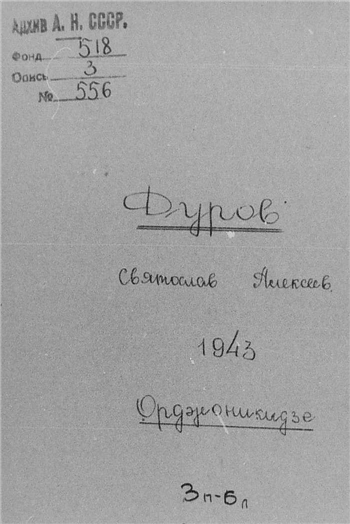 Архив А. Н. СССР.
Фонд 518
Опись 3
№ 556
Дуров
Святослав Алексеев.
1943
Орджоникидзе
3п-6л